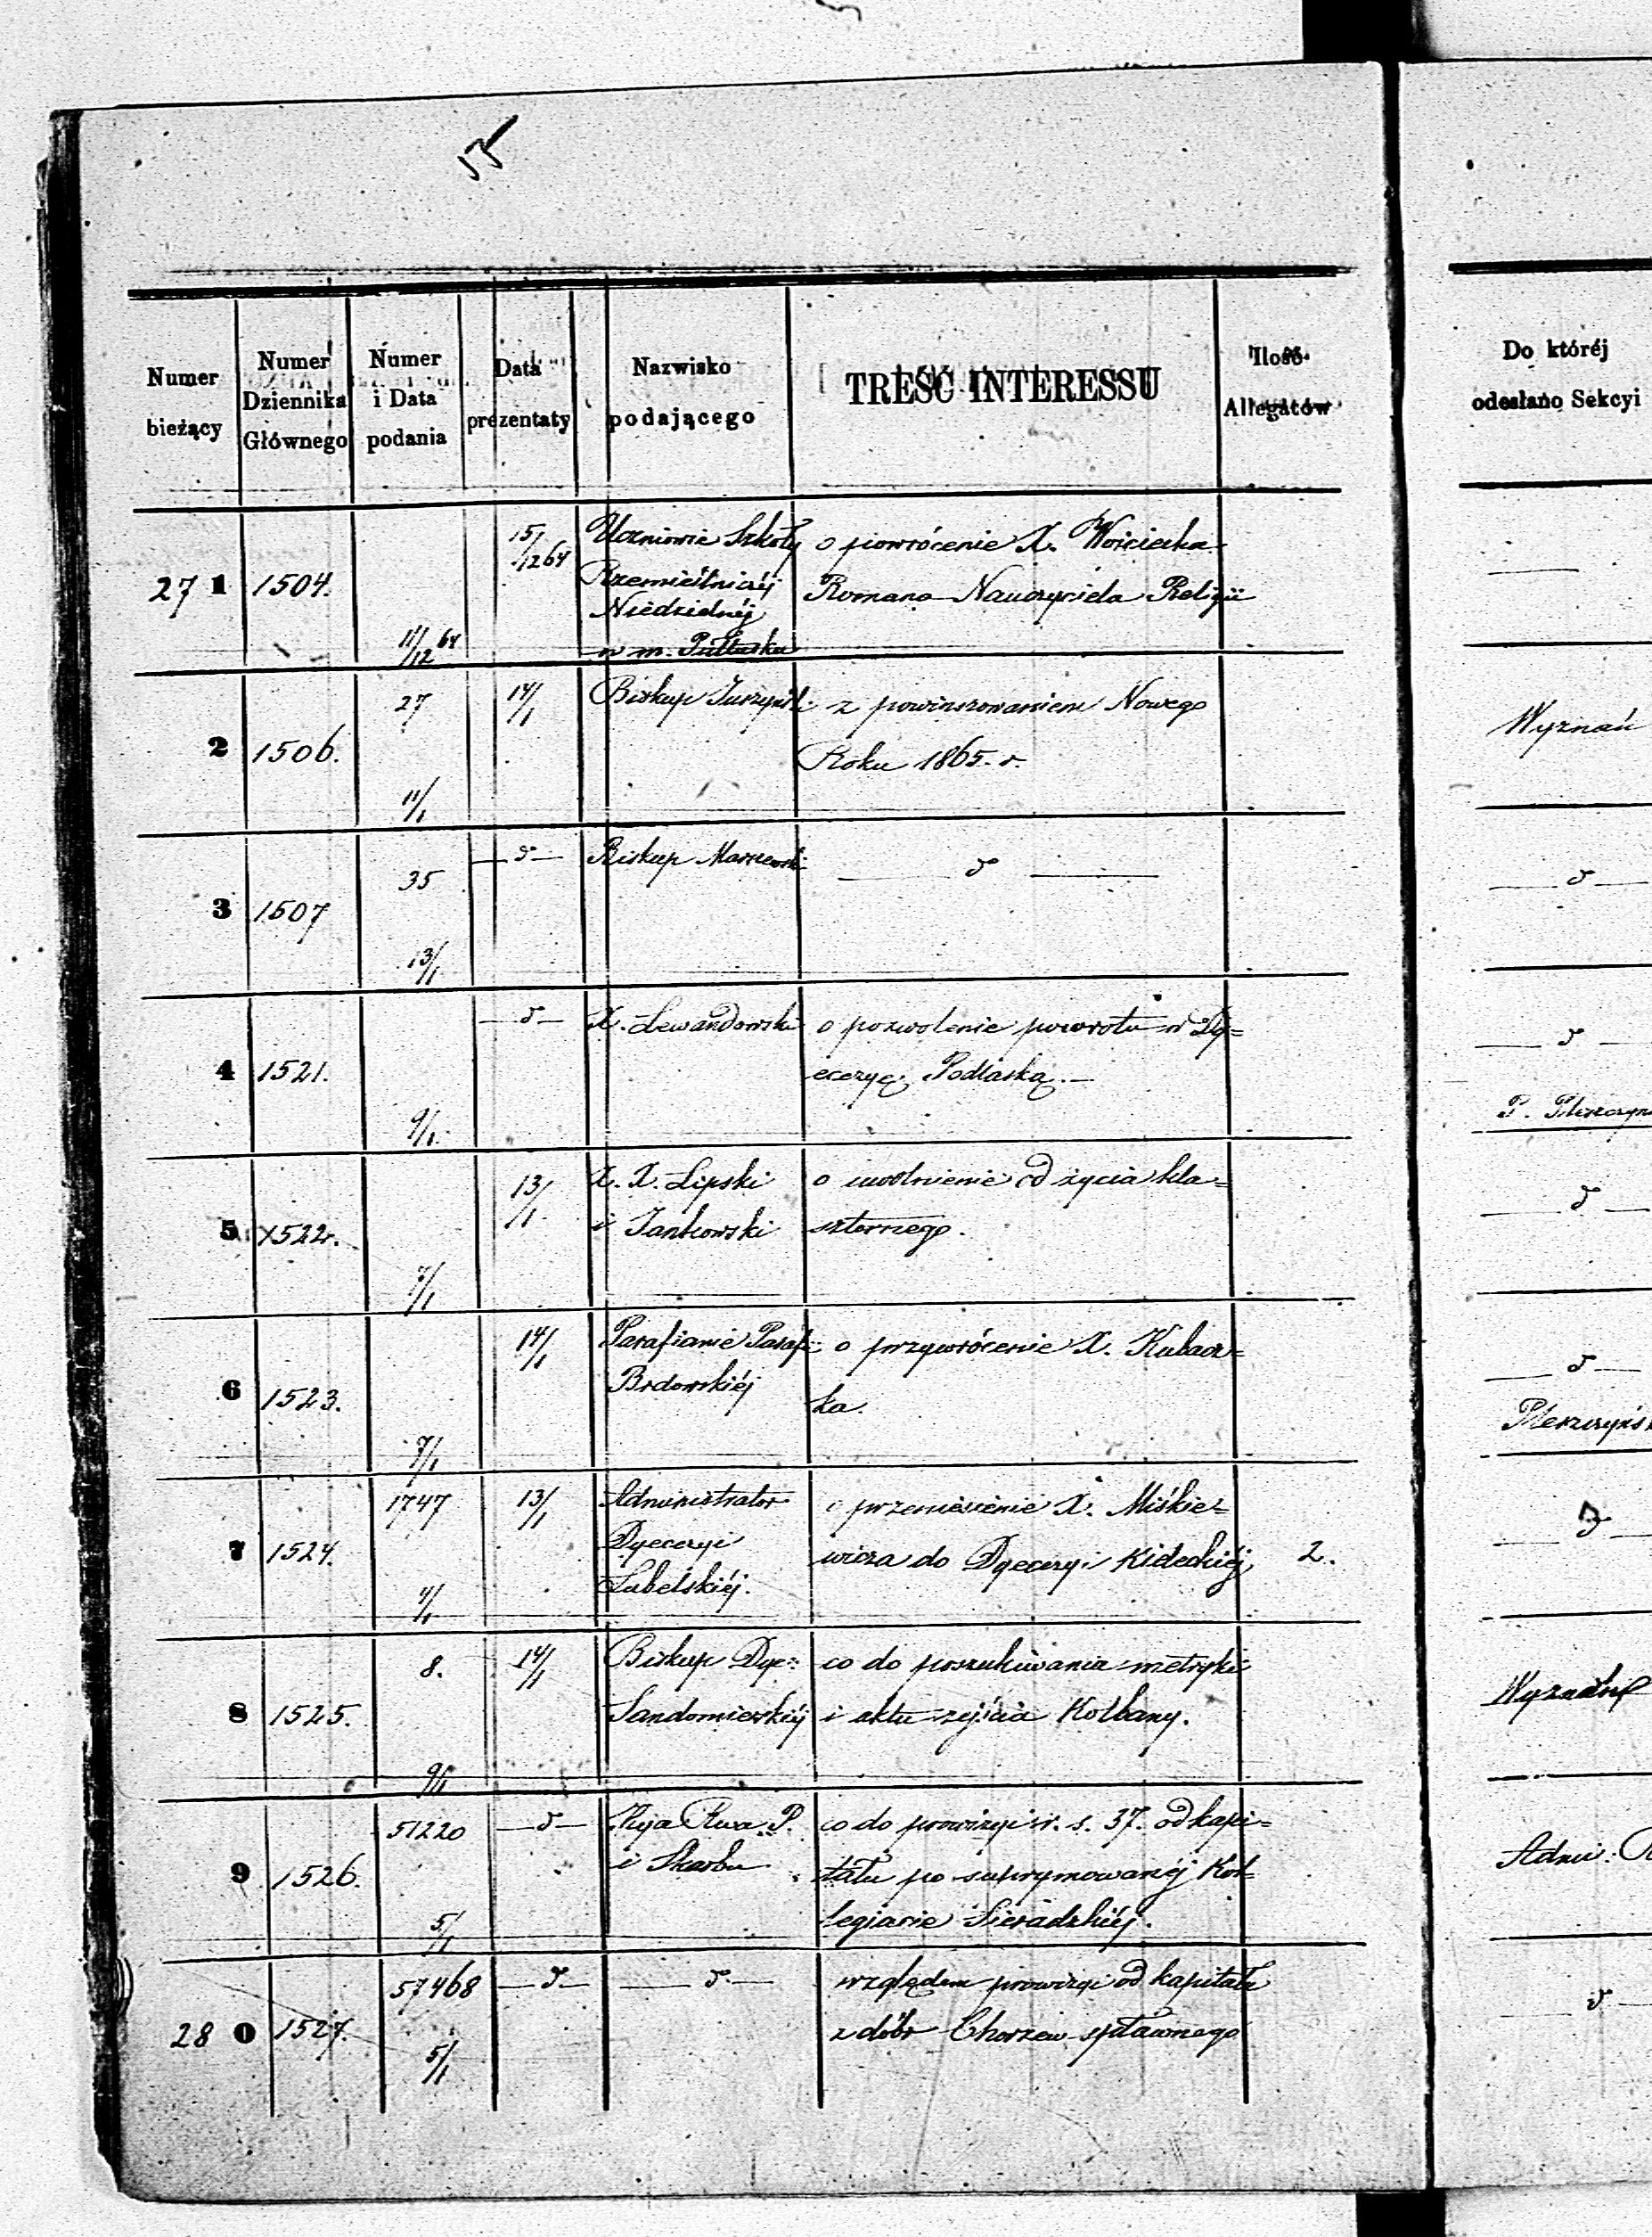 Numer bieżący
Numer Dziennika Głównego
Numer i Data podania
Data prezentaty
Nazwisko podającego
TREŚĆ INTERESSU
Ilość Allegatów
Do któréj odesłano Sekcyi
27 1 1504. 11/12 64 15/12 64
Uczniowie Szkoły
Rzemieślniczéj
Niedzielnéj
w m. Pułtusku
o powrócenie X. Wojciecha
Romana Nauczyciela Religii
2 1506. 27 11/1 14/1
Biskup Juszyński
z powinszowaniem Nowego
Roku 1865. r.
Wyznań
3 1507 35 13/1 — d —
Biskup Marszewski
— d —
— d —
4 1521. 9/1 — d —
X. Lewandowski
o pozwolenie powrotu w Dy=
ecezyę Podlaską. —
— d —
5 1522. 7/1 13/1
X. X. Lipski
i Jankowski
o uwolnienie od życia kla=
sztornego.
— d —
6 1523. 7/1 14/1
Parafianie Paraf:
Brdowskiéj
o przywrócenie X. Kubacz=
ka.
— d —
7 1524. 1747 13/1
Administrator
Dyecezyi
Lubelskiéj.
o przeniesienie X. Miśkie=
wicza do Dyecezyi Kieleckiéj
2.
— d —
8 1525. 8. 9/1 14/1
Biskup Dye:
Sandomierskiéj
co do poszukiwania metryki
i aktu zejścia Kolbany.
9 1526. 51220 5/1 — d —
P.
i Skarbu
co do prowizyi r. s. 37. od kapi=
tału po suprymowanéj Kol=
legiacie Sieradzkiéj.
28 0 1527. 57468 5/1 — d —
— d —
względem prowizyi od kapitału
z dóbr Chorzew spławnego
— d —